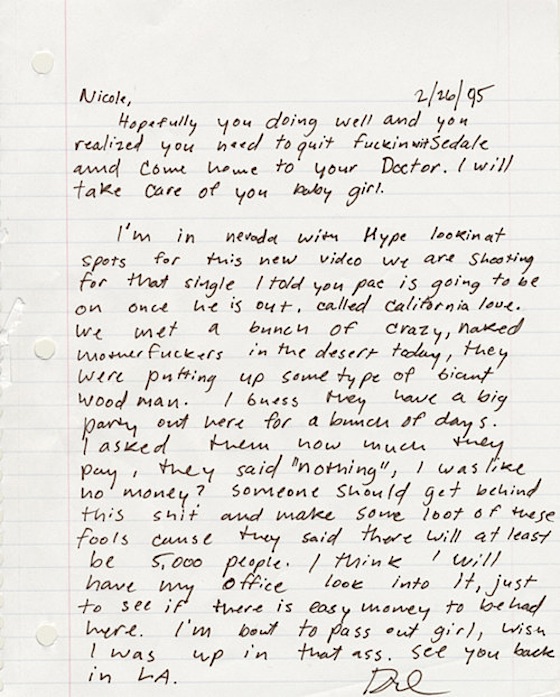 Nicole, 2/26/95
Hopefully you doing well and you
realized you need to quit fuckinwitSedale
amd come home to your Doctor. I will
take care of you baby girl.
I'm in nevada with Hype lookinat
spots for this new video we are shooting
for that single I told you pac is going to be
on once he is out, called California love.
We met a bunch of crazy, naked
motherfuckers in the desert today, they
were putting up some type of giant
wood man. I guess they have a big
party out here for a bunch of days.
I asked them how much they
pay, they said "nothing", I was like
no money? Someone should get behind
this shit and make some loot of these
fools cause they said there will at least
be 5,000 people. I think I will
have my office look into it, just
to see if there is easy money to be had
here. I'm bout to pass out girl, wish
I was up in that ass. See you back
in LA. Dre